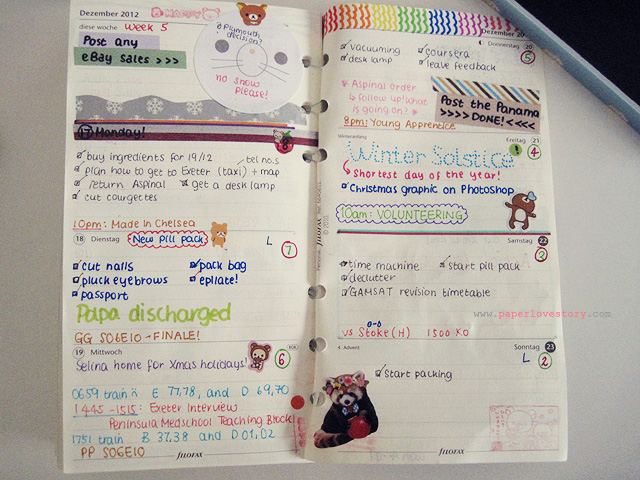 Dezember 2012
diese woche week 5
Post any
eBay sales >>>
Plymouth
decision?
no snow
please!
17 Monday!
buy ingredients for 19/12
tel no.s
plan how to get to Exeter (taxi) + map
return Aspinal
get a desk lamp
cut courgettes
10pm: Made in Chelsea
18 Dienstag
New pill pack
L
7
cut nails
pack bag
pluck eyebrows
epilate!
passport
Papa discharged
GG S06E10 - FINALE!
19 Mittwoch
6
Selina home for Xmas holidays!
0659 train E 77,78, and D 69,70
1445 - 1515: Exeter Interview
Peninsula Medschool Teaching Block
1751 train B 37,38 and D 01,02
PP S06E10
FILOFAX
Personal FILOFAX © 2010
Dezember 20
Donnerstag 20
5
vacuuming
coursera
desk lamp
leave feedback
Aspinal order
follow up! what
is going on?
Post the Panama
>>>>> DONE! <<<<
8pm: Young Apprentice
Winteranfang
Freitag 21
4
Winter Solstice
!
Shortest day of the year!
Christmas graphic on Photoshop
10am: VOLUNTEERING
Samstag 22
3
time machine
start pill pack
declutter
GAMSAT revision timetable
www.paperlovestory.com
vs Stoke (H) 1500 KO
4. Advent
Sonntag 23
L
2
start packing
FILOFAX